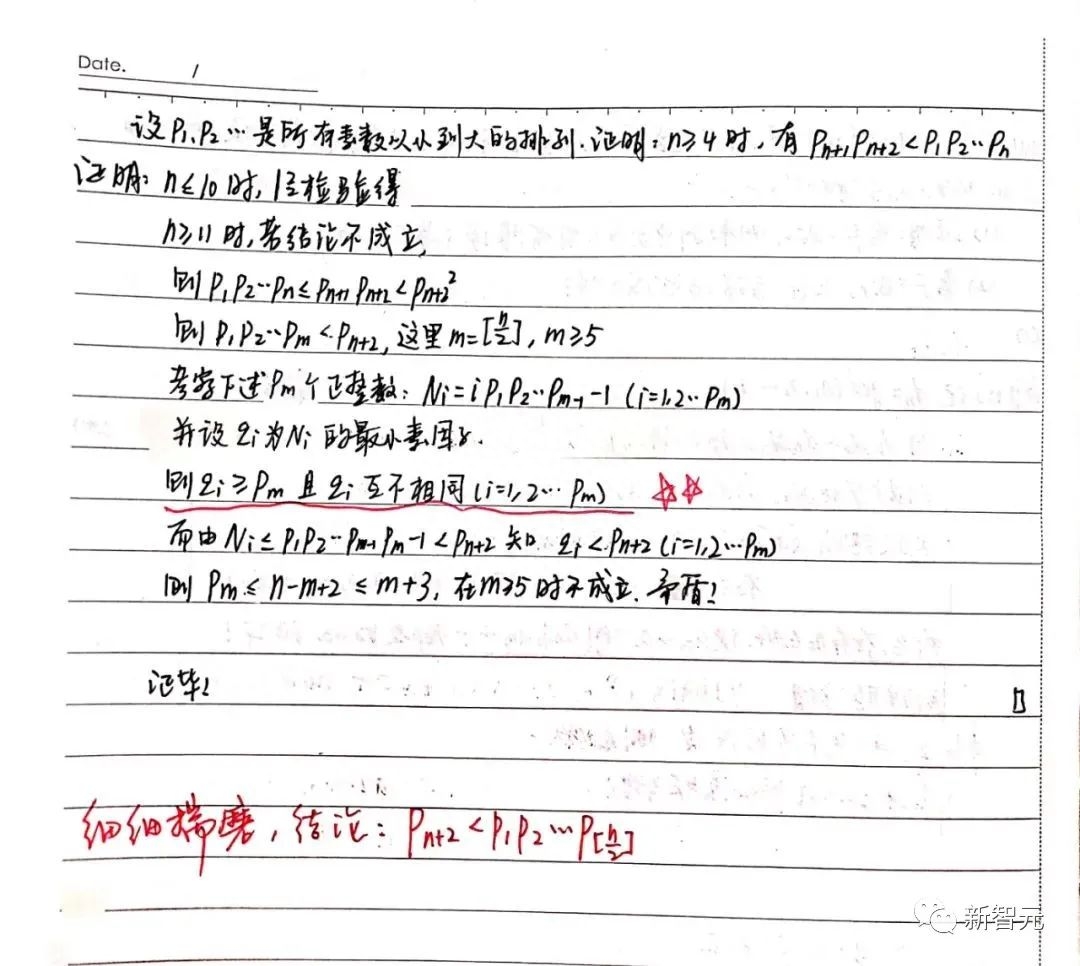 Date. /
设P₁、P₂…是所有素数从小到大的排列. 证明: n≥4时, 有 Pn+1Pn+2<P₁P₂…Pn
证明: n≤10时, 经检验显得
n≥11时, 若结论不成立
则P₁P₂…Pn≤Pn+1Pn+2<Pn+2²
则P₁P₂…Pm<Pn+2, 这里m=[n/2], m≥5
考察下述Pm个正整数: Ni=iP₁P₂…Pm-1-1 (i=1,2…Pm)
并设qi为Ni的最小素因子.
则qi≥Pm且qi互不相同(i=1,2…Pm) ☆☆
而由Ni≤P₁P₂…Pm-1Pm-1<Pn+2知 qi<Pn+2(i=1,2…Pm)
则Pm≤n-m+2≤m+3, 在m≥5时不成立. 矛盾!
证毕!
细细揣磨, 结论: Pn+2<P₁P₂…P[n/2]
新智元